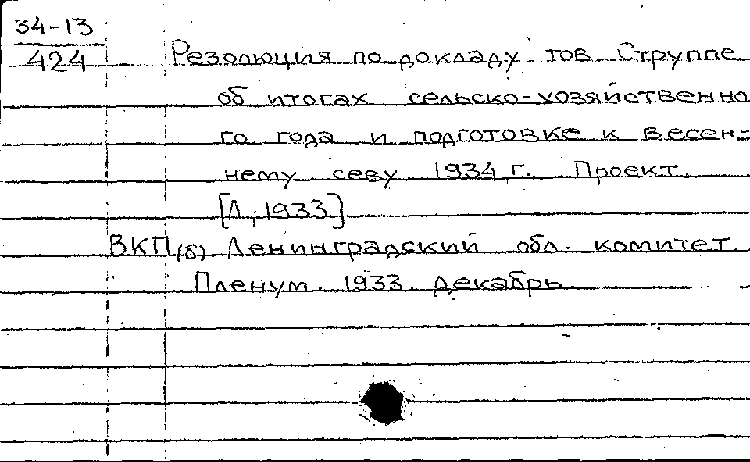 34-13
424 Резолюция по докладу тов. Струппе
об итогах сельско-хозяйственно
го года и подготовке к весен=
нему севу 1934 г. Проект.
[Л, 1933]
ВКП(б) Ленинградский обл. комитет.
Пленум. 1933. декабрь